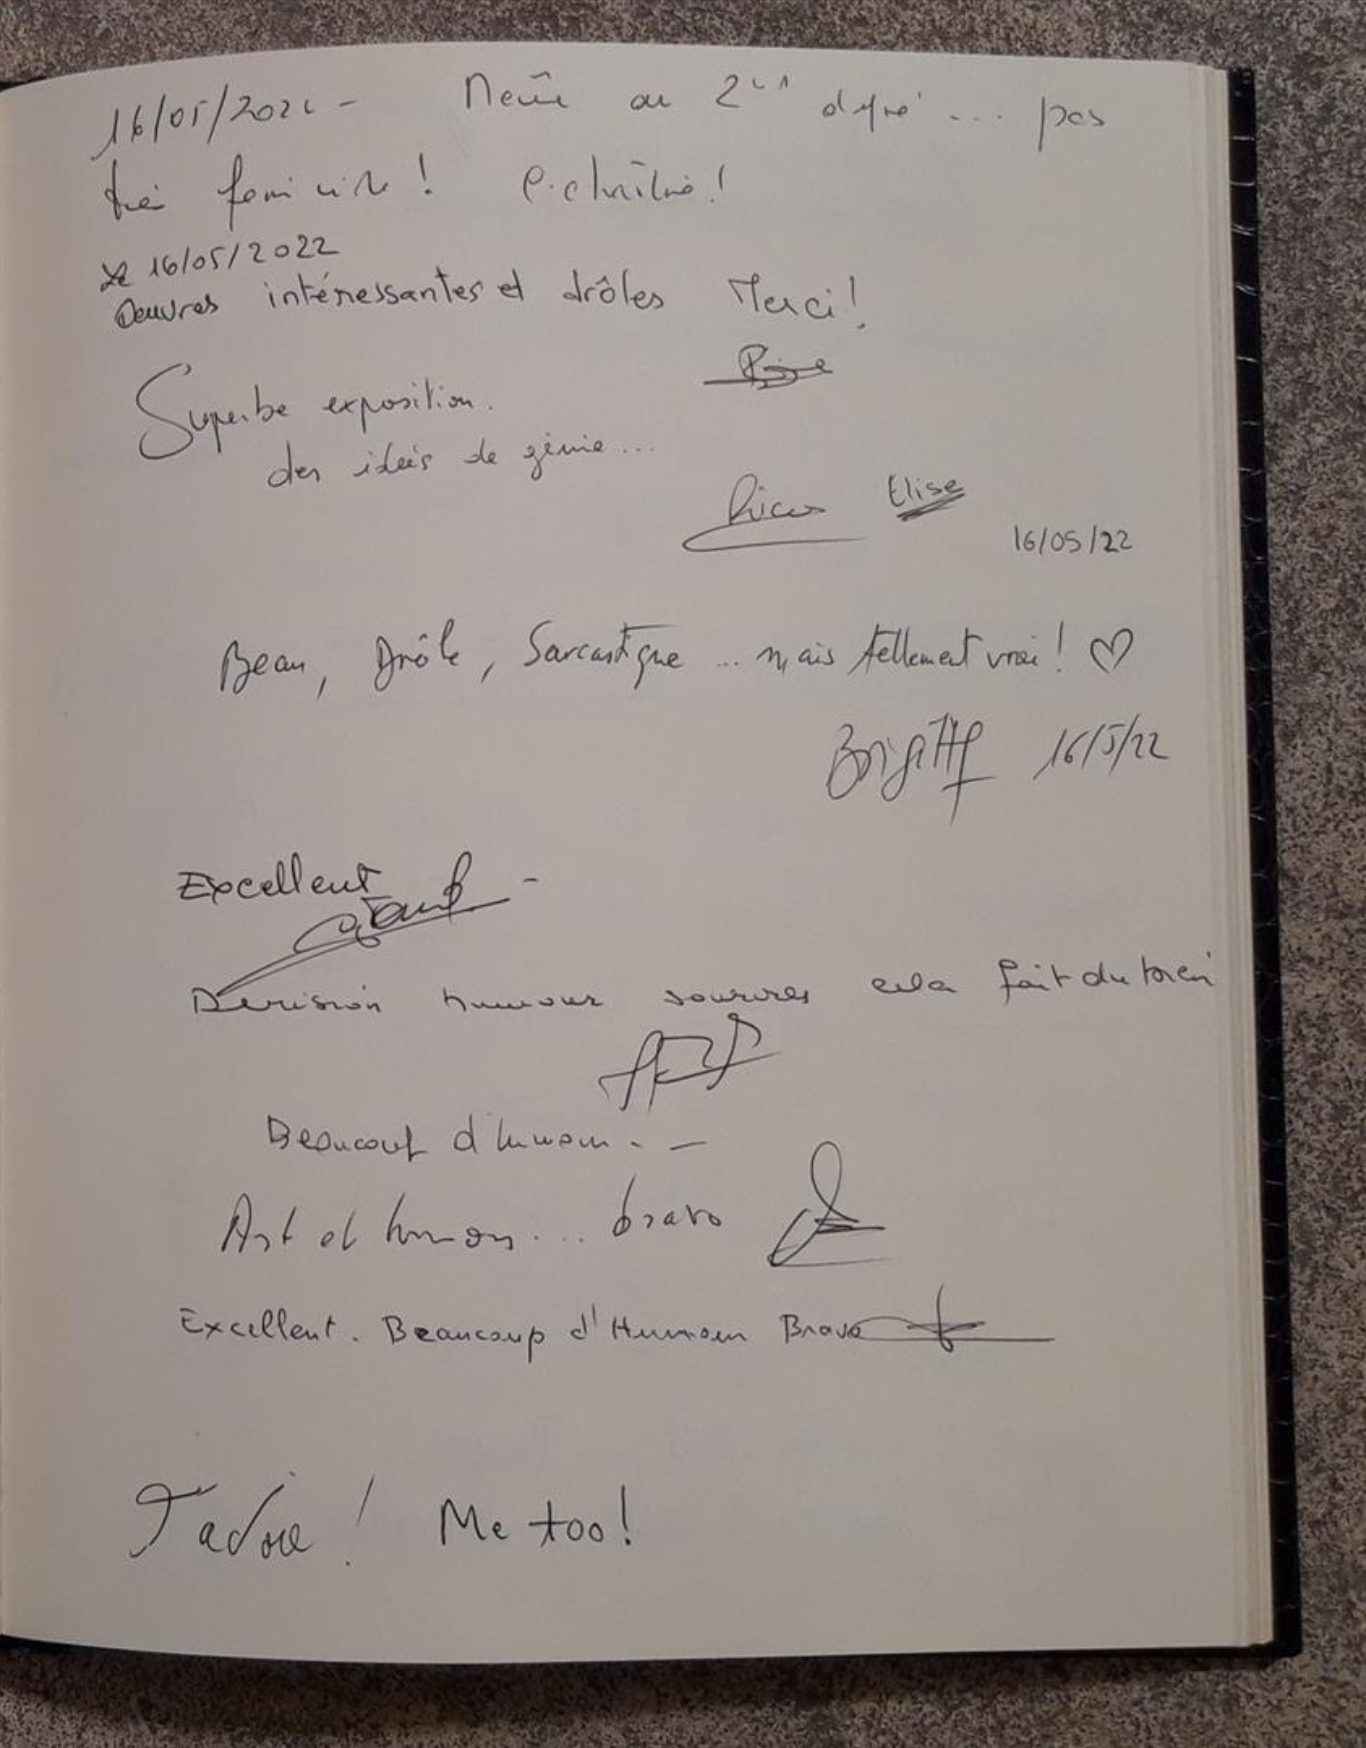 16/05/2022 - Même au 2nd degré ... pas
très féministe !
Le 16/05/2022
Oeuvres intéressantes et drôles Merci !
Superbe exposition.
des idées de génie ...
Elise
16/05/22
Beau, Drôle, Sarcastique ... mais tellement vrai ! ♡
Brigitte 16/5/22
Excellent
Derision humour sourires cela fait du bien
Beaucoup d'humour. -
Art et humour ... bravo
Excellent. Beaucoup d'Humour Bravo
J'adore ! Me too !